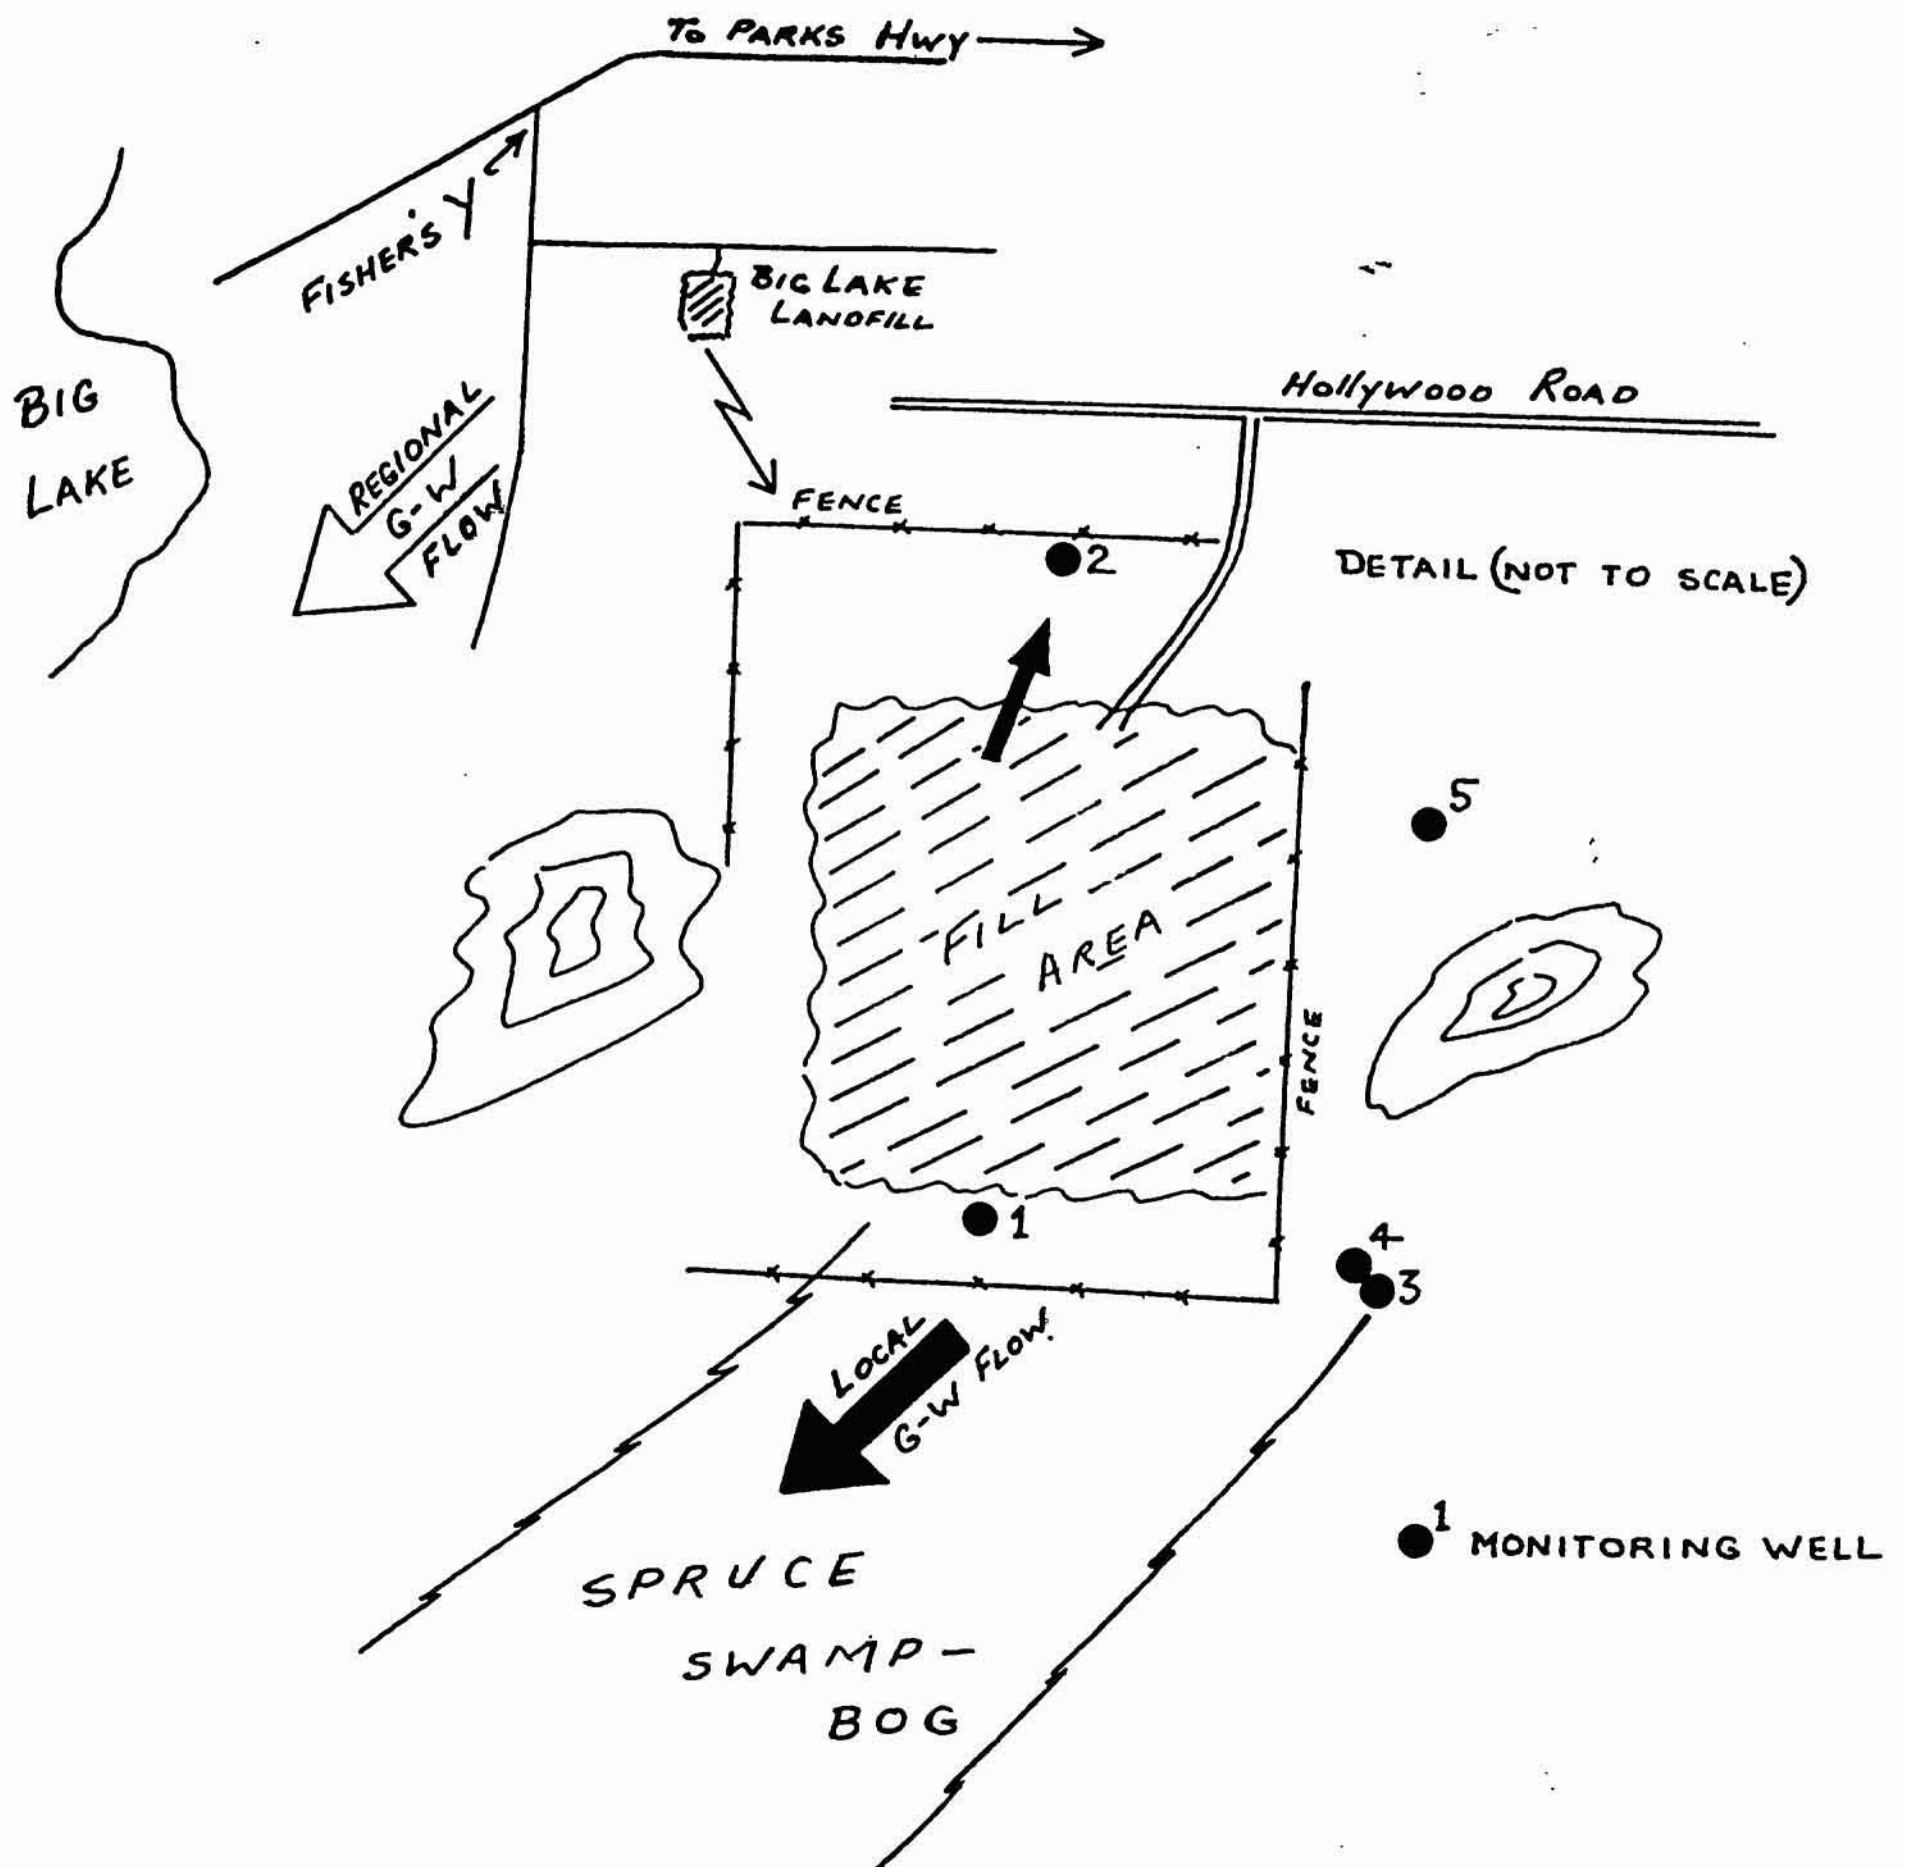 To PARKS HWY
FISHER'S Y
BIG LAKE
LANDFILL
BIG
LAKE
REGIONAL
G-W
FLOW
Hollywood ROAD
FENCE
2
DETAIL (NOT TO SCALE)
5
FILL
AREA
FENCE
1
4
3
LOCAL
G-W FLOW.
1 MONITORING WELL
SPRUCE
SWAMP-
BOG